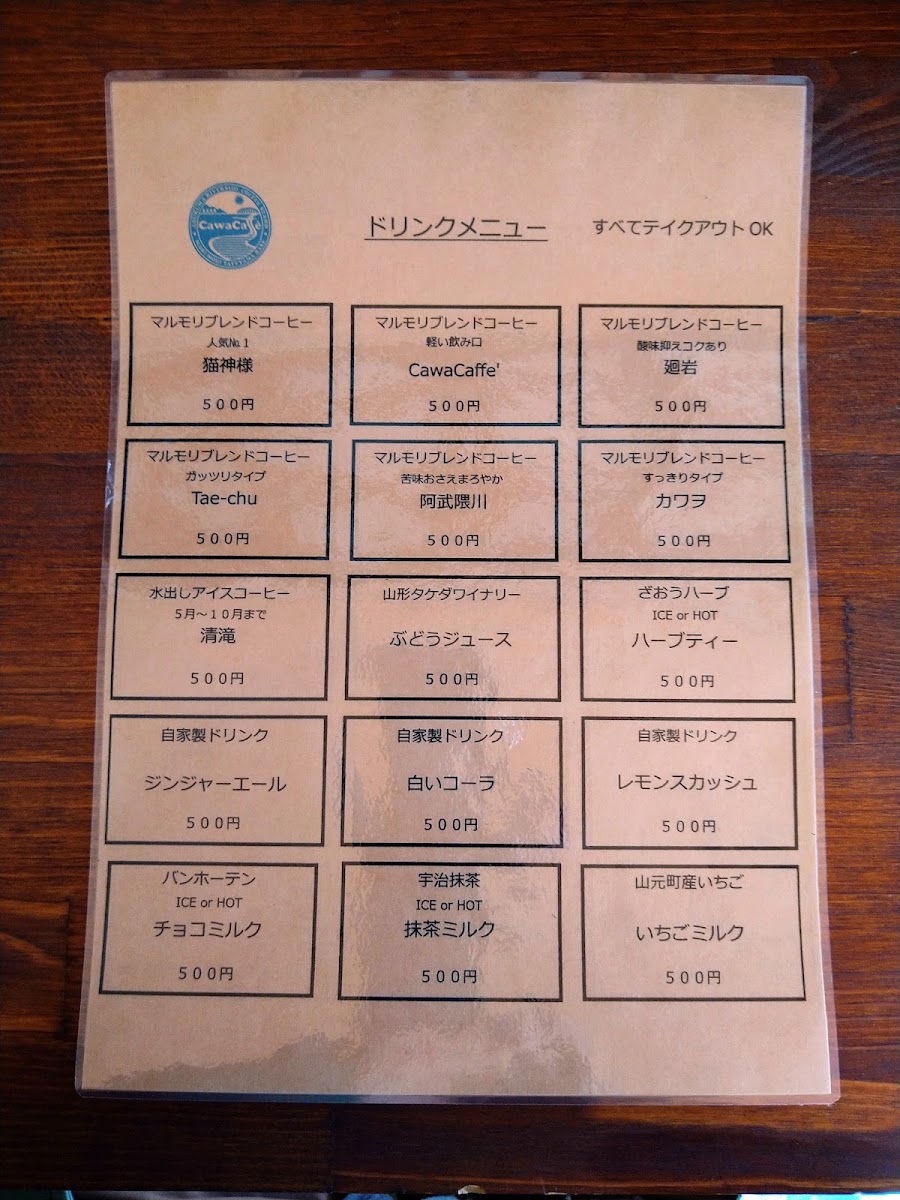 CawaCaffe
ドリンクメニュー
すべてテイクアウト OK
マルモリブレンドコーヒー
人気№1
猫神様
500円
マルモリブレンドコーヒー
軽い飲み口
CawaCaffe'
500円
マルモリブレンドコーヒー
酸味抑えコクあり
廻岩
500円
マルモリブレンドコーヒー
ガッツリタイプ
Tae-chu
500円
マルモリブレンドコーヒー
苦味おさえまろやか
阿武隈川
500円
マルモリブレンドコーヒー
すっきりタイプ
カワヲ
500円
水出しアイスコーヒー
5月～10月まで
清滝
500円
山形タケダワイナリー
ぶどうジュース
500円
ざおうハーブ
ICE or HOT
ハーブティー
500円
自家製ドリンク
ジンジャーエール
500円
自家製ドリンク
白いコーラ
500円
自家製ドリンク
レモンスカッシュ
500円
バンホーテン
ICE or HOT
チョコミルク
500円
宇治抹茶
ICE or HOT
抹茶ミルク
500円
山元町産いちご
いちごミルク
500円